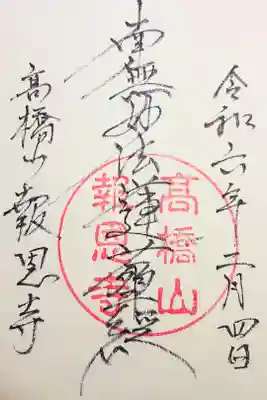 令和六年二月四日
南無妙法蓮華経
高橋山
報恩寺
高橋山 報恩寺